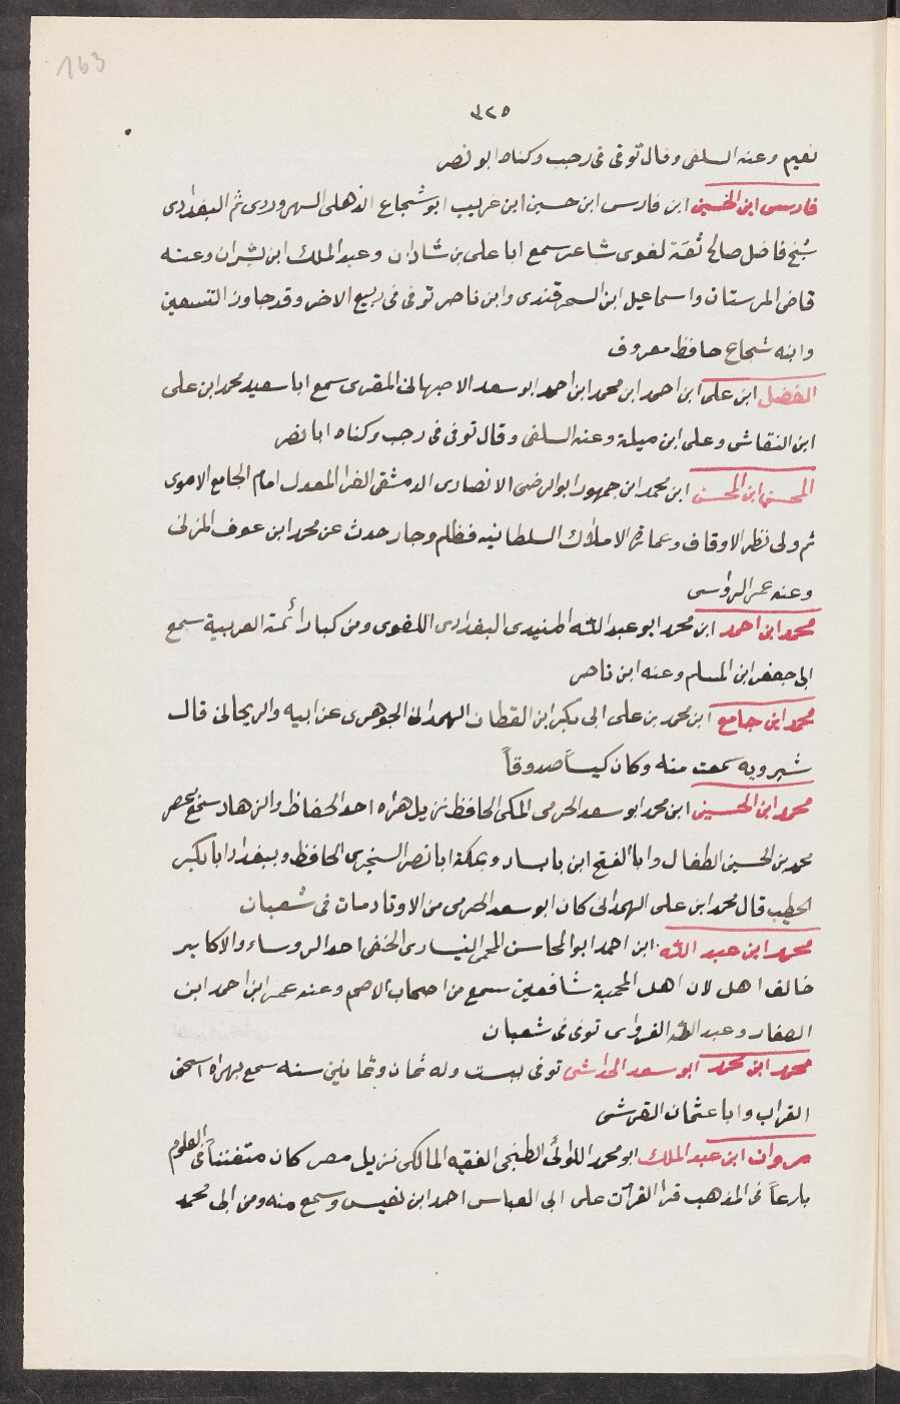 163
٣٢٥
نعيم وعنه السلفى وقال توفى فى رجب وكناه ابو نصر
فارس ابن الحسين ابن فارس ابن حسين ابن غريب ابو شجاع الذهلى السهروردى ثم البغدادى
شيخ فاضل صالح ثقة لغوى شاعر سمع ابا على بن شاذان وعبد الملك ابن بشران وعنه
قاضى المرستان واسماعيل ابن السمرقندى وابن ناصر توفى فى ربيع الاخر وقد جاوز التسعين
وابنه شجاع حافظ معروف
الفضل ابن على ابن احمد ابن محمد ابن احمد ابو سعد الاصبهانى المقرى سمع ابا سعيد محمد ابن على
ابن النقاش وعلى ابن ميلة وعنه السلفى وقال توفى فى رجب وكناه ابا نصر
المحسن ابن المحسن ابن محمد ابن جمهور ابو الرضى الانصارى الدمشقى الفرا المعدل امام الجامع الاموى
ثم ولى نظر الاوقاف وعمارة الاملاك السلطانيه فظلم وجار حدث عن محمد ابن عوف المزنى
وعنه عمر الرواسى
محمد ابن احمد ابن محمد ابو عبد الله البغدادى اللغوى ومن كبار ائمة العربية سمع
ابى جعفر ابن المسلم وعنه ابن ناصر
محمد ابن جامع ابن محمد بن على ابى بكير ابن القطان الهمدانى الجوهرى عن ابيه والريحانى قال
شيرويه سمعت منه وكان كيساً صدوقاً
محمد ابن الحسين ابن محمد ابو سعد الحرمى المكى الحافظ نزيل هراه احد الحفاظ والزهاد سمع بمصر
محمد بن الحسين الطفال وابا الفتح ابن باباساد وبمكة ابا نصر السنجرى الحافظ وببغداد ابا بكير
الخطيب قال محمد ابن على الهمدانى كان ابو سعد الحرمى من الاوتاد مات فى شعبان
محمد ابن عبد الله ابن احمد ابو المحاسن المحمى النيسارى الحنفى احد الروساء والاكابر
خالف اهل لان اهل المحمية شافعين سمع من اصحاب الاصم وعنه عمر ابن احمد ابن
الصفار وعبد الله الفراوى توفى فى شعبان
محمد ابن محمد ابو سعد الخداشى توفى ببست وله ثمان وثمانين سنه سمع بهراه اسحق
القراب وابا عثمان القرشى
مروان ابن عبد الملك ابو محمد اللواتى الطنجى الفقيه المالكى نزيل مصر كان متفننا فى العلوم
بارعاً فى المذهب قرا القرآن على ابى العباس احمد ابن نفيس وسمع منه ومن ابى محمد